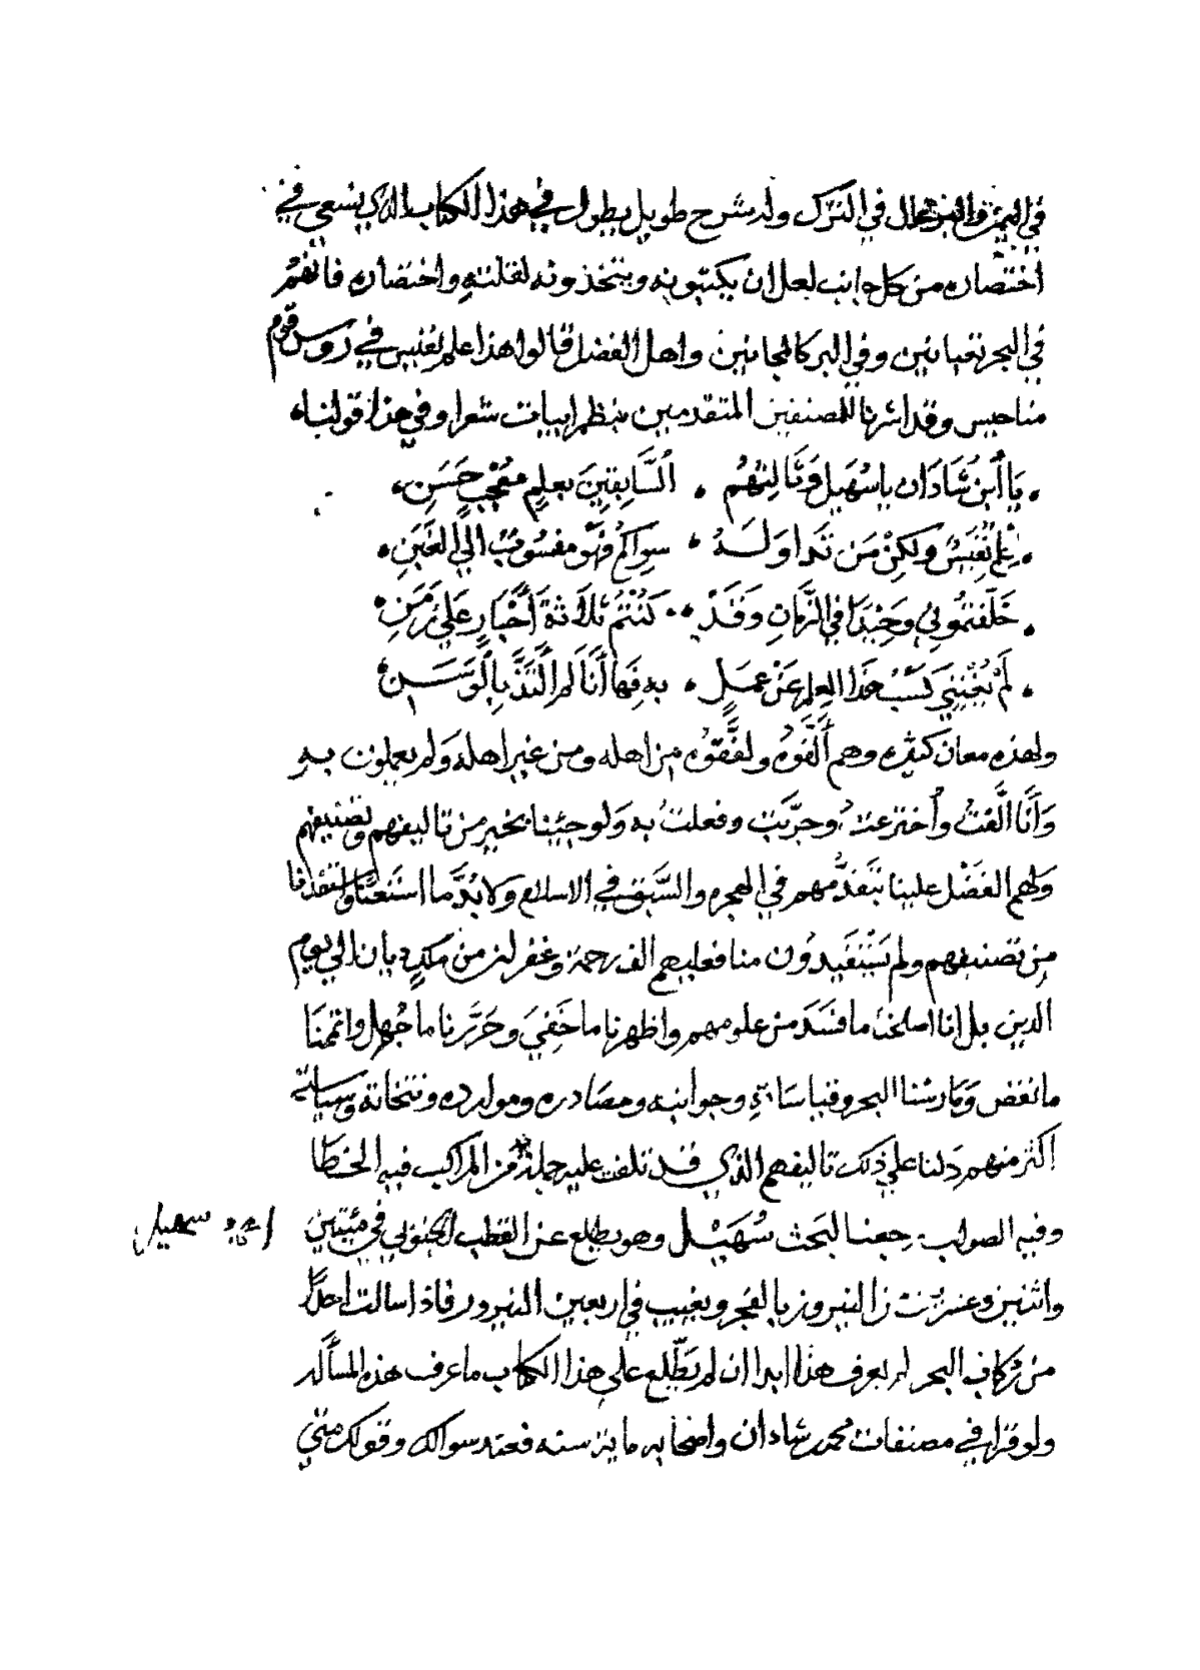 في اليمن والبرهال في الترك وله شرح طويل يطول في هذا الكتاب الذي نسعي في
اختصاره من كل جانب لعل ان يكتبونه ويتخذونه لقلته واختصاره فانهم
في البحر تعبانين وفي البر كالمجانين واهل الفضل قالوا هذا علم نفيس في روس قوم
مناحيس وقد اشرنا للمصنفين المتقدمين بنظم ابيات شعرا وفي هذا قولنا
يَا أبن شَادَان يا سُهَيل وَثَالِثهُم • السَّابِقِينَ بعلمٍ مُعْجِبٍ حَسَنِ
عِلم نَفِيسٌ ولكِنْ مَن تَداولَهُ • سِواكُم فَهْوَ منسُوبٌ الي الغَبَنِ
خَلَّفتمُوني وَحِيْدًا في الزَّمانِ وَقَدْ • كُنْتُمْ ثلاثةَ أحْبَارٍ عَلي زَمَنِ
لَمْ يُغْنِنِي كَسْبُ هَذا العِلمِ عَنْ عَمَلٍ • به فَها أَنَا لم ألْتَذَّ بِالْوَسَنِ
ولهذه معان كثيره وهم ألَّفوُه ولفَّقوُه من اهله ومن غير اهله ولم يعملون به
وَأَنَا الَّفتُ وأخترعتُ وجرَّبت وفعلتُ به وَلو جيئنا بخير من تاليفهم وتصنيفهم
وَلهم الفَضْل علينا بتَقدُّمهم في الهجره والسَّبق في الاسلام ولا بُدَّ ما استَنفعنا واستفدنا
من تصنيفهم ولم يَسْتَفيدوُن منا فعليهم الف رحمة وغفر لنر من مكدٍ يان الي يوم
الدين بل انا اصلحنا ما فَسَدَ من علومهم واظهرنا ما خَفِيَ وحَرَّرنا ما جُهل واتممنَا
ما نقض وَمَارسْنا البحر وقياسَاته وجوانبه ومصَادره وموارده ونتخاته وسياسته
اكثر منهم دَلنا علي ذلك تاليفهم الذي قد تلفت عليه جملة من المراكب فيه الخطَا
وفيه الصواب رجعنا لبَحث سُهَيْل وهو يطلع عن القطب الجنوبي في مئيتين
واثنين وعشرين من النيروز بالفجر ويغيب في اربعين النيروز فاذا سالت احدًا
من ركاب البحر لم يعرف هذا ابدا ان لم يَطَّلع علي هذا الكتاب ما عرف هذه المسأله
ولو قرا في مصنفات محمد بن شاذان واصحابه ماية سنه فعند سوالك وقولك متي
سهيل